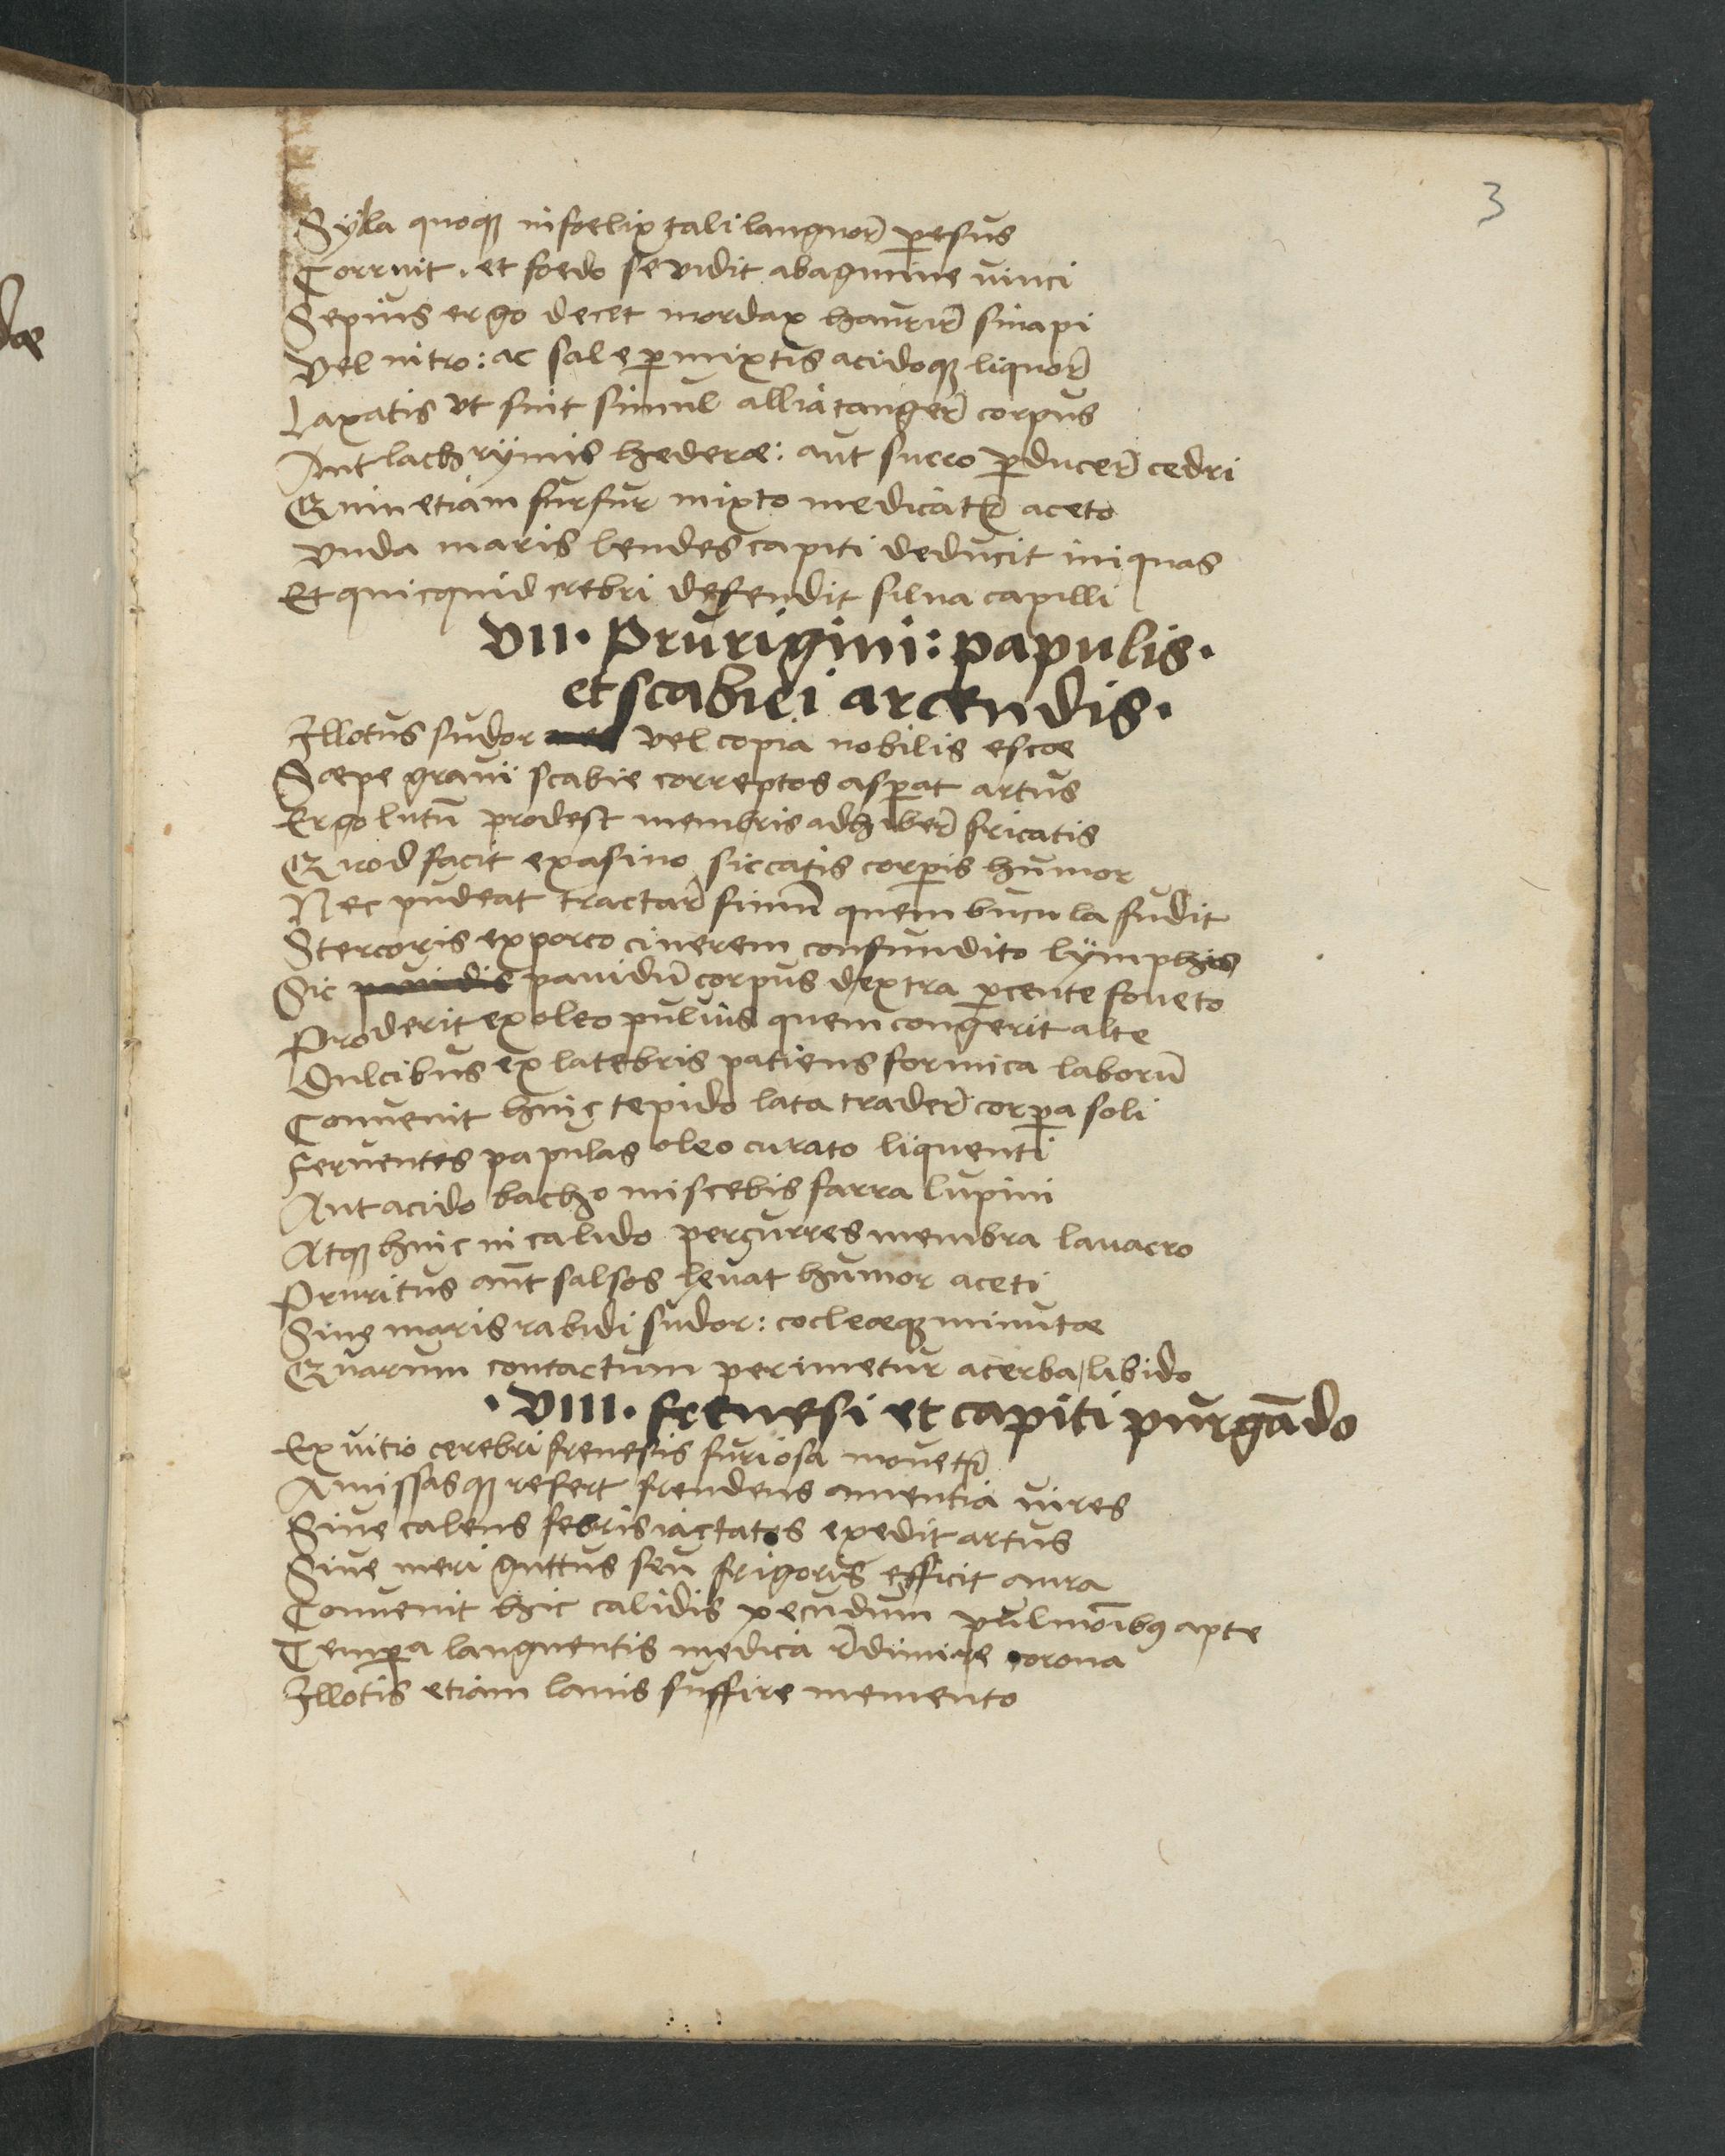 3
Sylla quoqȝ infoelix tali languor̄ p̱esus
Corruit. et foedo se vidit abagmine vinci
Sepius ergo decet mordax haurir̄ sinapi
Vel nitro: ac sale p̱mixtis acidoqȝ liquor̄
Laxatis vt sint simul allia tanger̄ corpus
Aut lachrymis hederæ: aut succo p̱ducer̄ cedri
Quin etiam furfur mixto medicat᷑ aceto
Vnda maris lendes capiti deducit iniquas
Et quicquid crebri defendit silua capilli
VII. Prurigini: papulis.
et scabiei arcendis.
Illotus sudor vel copia nobilis escæ
Sæpe graui scabie correptos asp̱at artus
Ergo lutū prodest membris adhiber̄ fricatis
Quod facit ex asino siccatis corp̱is humor
Nec pudeat tractar̄ fimū quem bucula fudit
Stercoris ex porco cinerem confundito lymphis
Sic pauidis pauidū corpus dextra p̱cente foueto
Proderit ex oleo puluis quem congerit alte
Dulcibus ex latebris patiens formica laborū
Conuenit huic tepido lata trader̄ corp̱a soli
Feruentes papulas oleo curato liquenti
Aut acido bacho miscebis farra lupini
Atqȝ huic in calido percurres membra lauacro
Pruritus aūt salsos leuat humor aceti
Siue maris rabidi sudor: cocleæqȝ minutæ
Quarum contactum perimetur acerba libido
. VIII. frenesi et capiti purgādo
Ex uitio cerebri frenesis furiosa mouet᷑
Amissasqȝ refert frendens amentia uires
Siue calens febris iactatos exedit artus
Siue meri guttus seu frigoris efficit aura
Conuenit hic calidis pecudum pulmōibꝰ apte
Temp̱a languentis medica r̄dimire corona
Illotis etiam lanis suffire memento